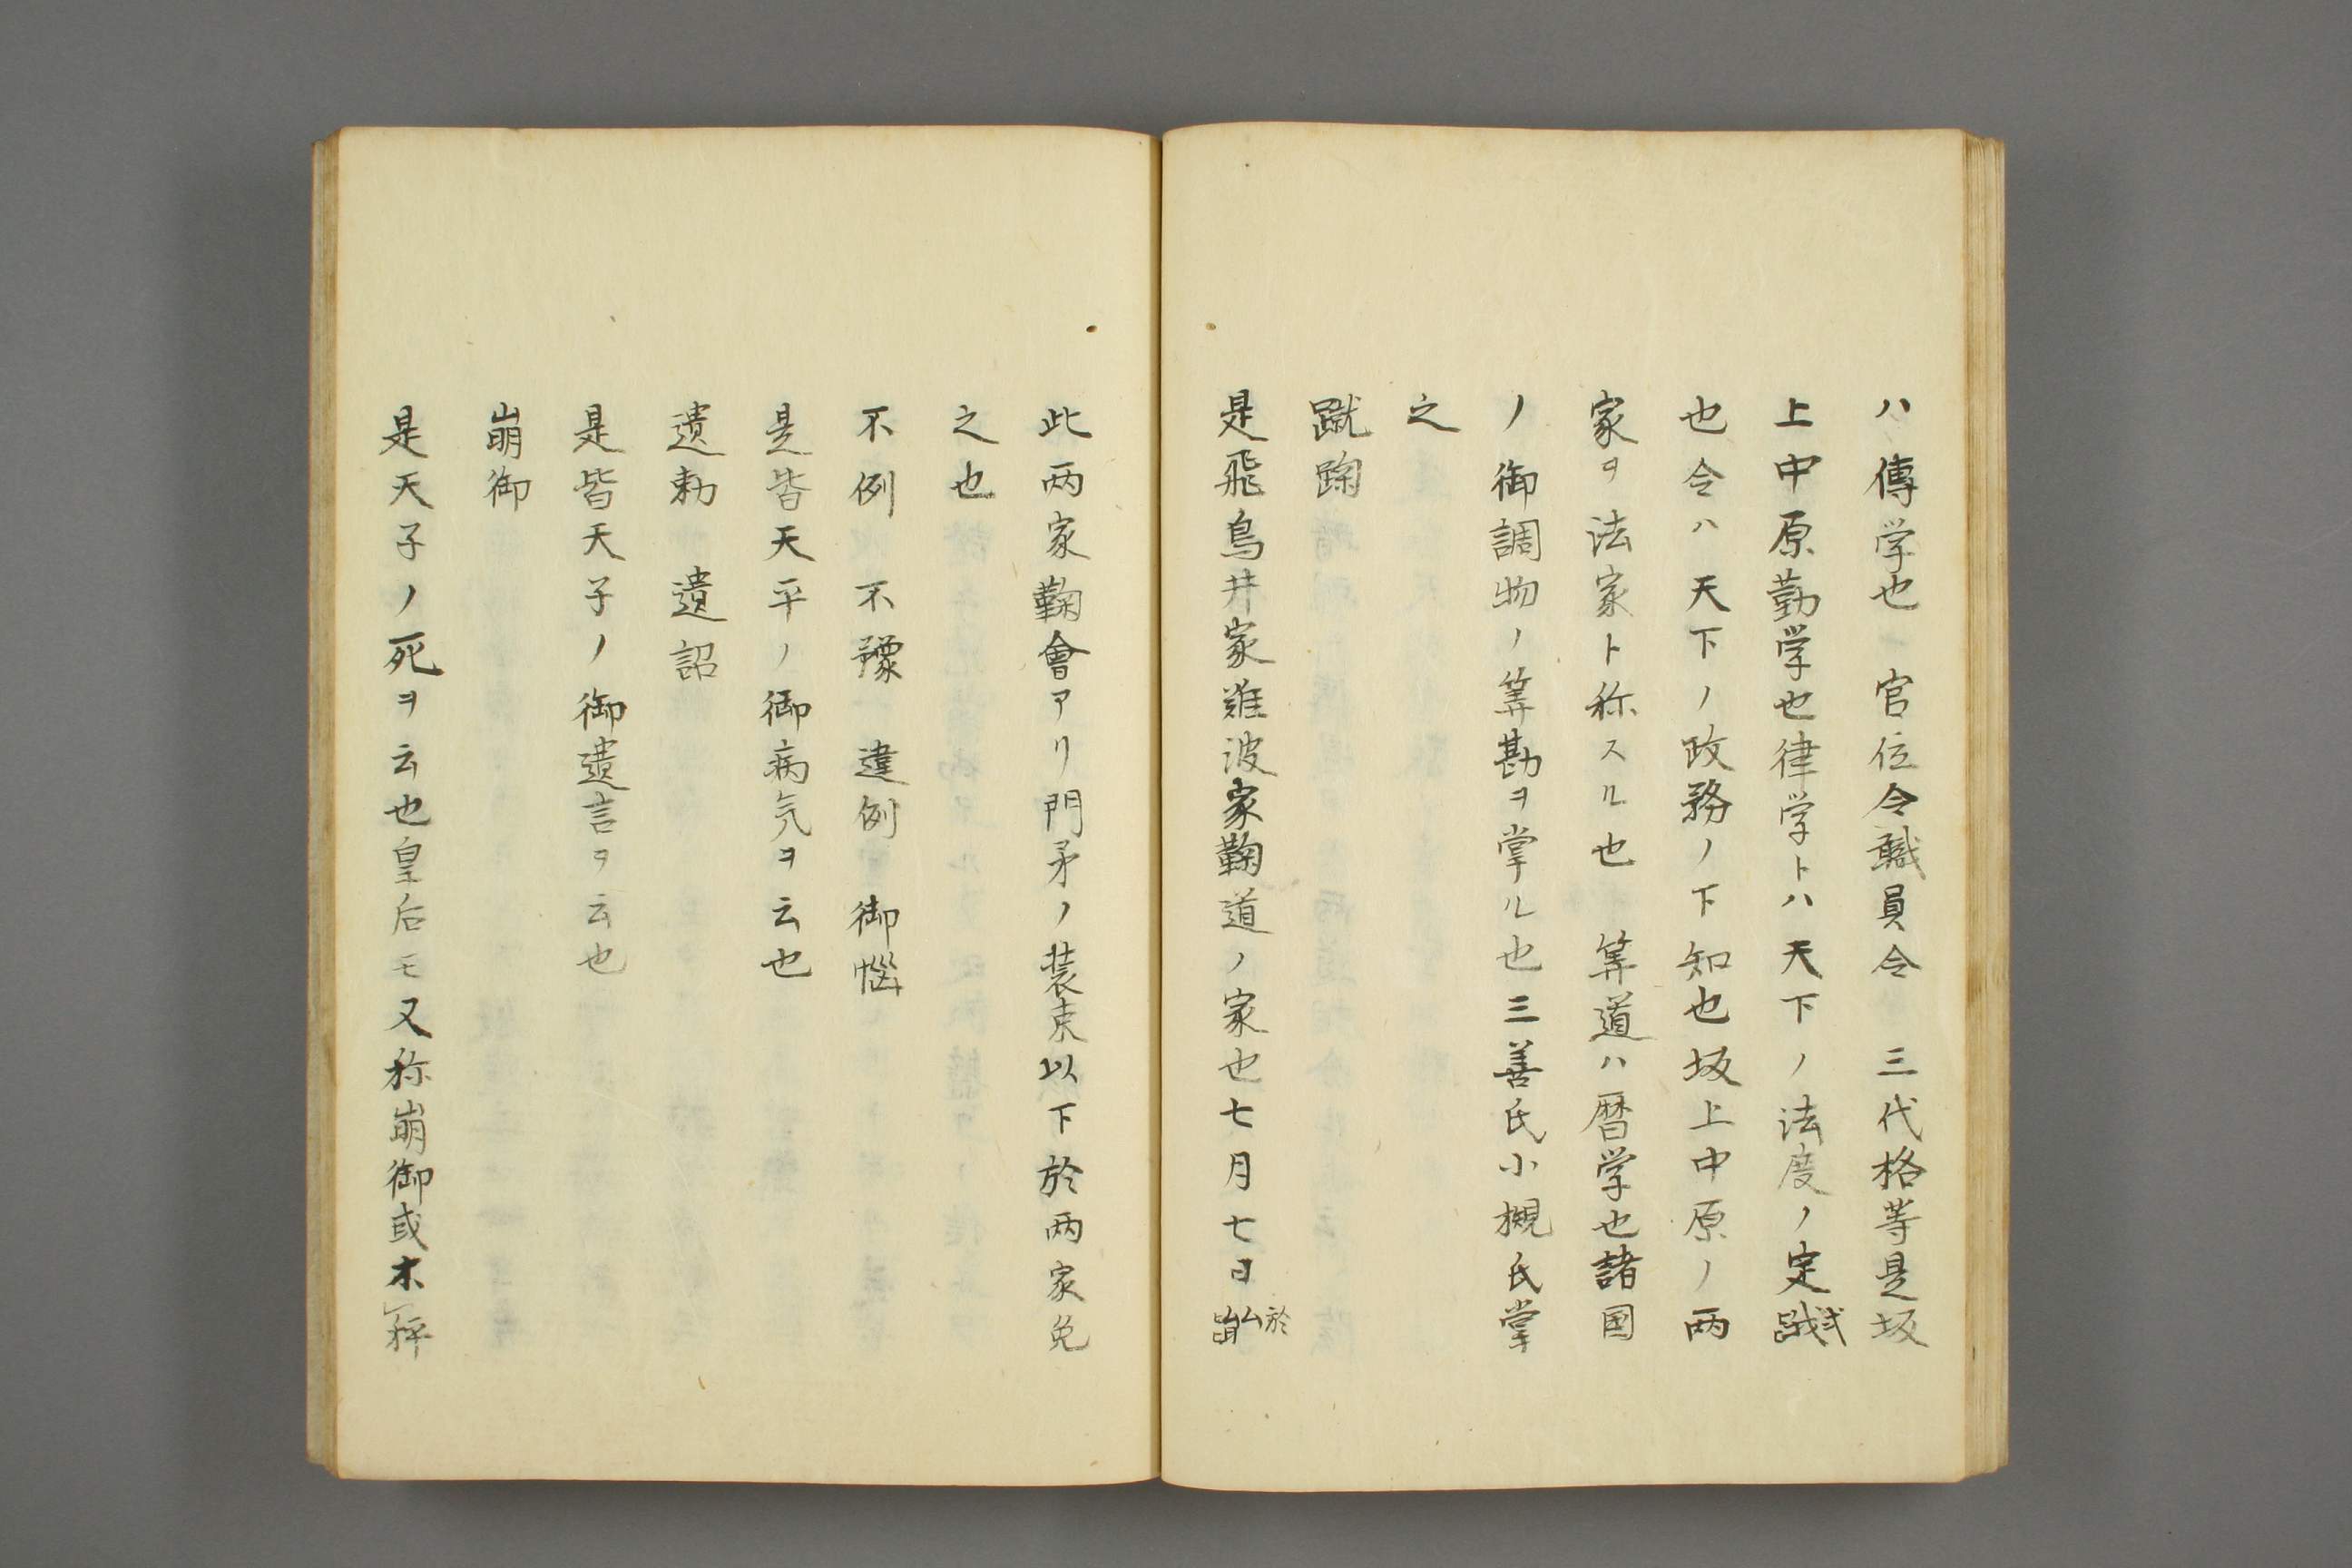 ハ傳学也 官位令職員令 三代格等是坂
上中原勤学也律学トハ天下ノ法度ノ定式
也令ハ天下ノ政務ノ下知也坂上中原ノ両
家ヲ法家ト称スル也 筭道ハ暦学也諸国
ノ御調物ノ筭勘ヲ掌ル也三善氏小槻氏掌
之
蹴鞠
是飛鳥井家難波家鞠道ノ家也七月七日於
此両家鞠會アリ門弟ノ装束以下於両家免
之也
不例 不豫 違例 御悩
是皆天平ノ御病気ヲ云也
遺勅 遺詔
是皆天子ノ御遺言ヲ云也
崩御
是天子ノ死ヲ云也皇后モ又称崩御或不称